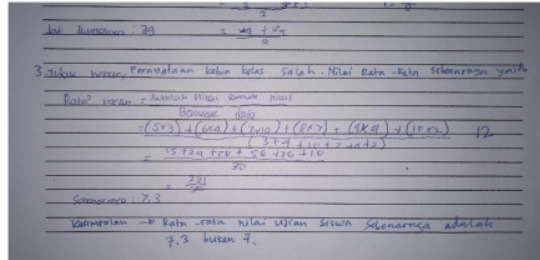 2
Jadi kuantumen : 39 =
2
3. Tidak benar, Pernyataan ketua kelas salah. Nilai Rata-Rata sebenarnya yaitu
Rata² mean = Jumlah nilai semua nilai
Banyak data
= (5x3) + (6x4) + (7x10) + (8x7) + (9x4) + (10x2) 12
(3+4+10+7+4+2)
= 15+24+70+56+36+10
30
= 221
30
Sebenarnya : 7,3
Kesimpulan → Rata-rata nilai ujian siswa sebenarnya adalah
7,3 bukan 7.